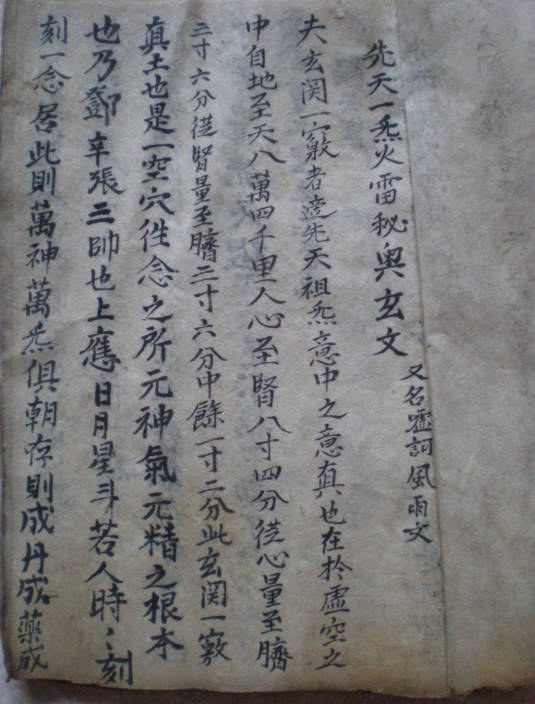 先天一炁火雷秘奥玄文
又名嘘訶風雨文
夫玄関一竅者逹先天祖炁意中之意真也在扵虚空之
中自地至天八萬四千里人心至腎八寸四分従心量至臍
三寸六分従腎量至臍三寸六分中餘一寸二分此玄関一竅
真土也是一空穴性念之所元神氣元精之根本
也乃鄧辛張三帥也上應日月星斗若人時〻刻
刻一念居此則萬神萬炁俱朝存則成丹成薬成